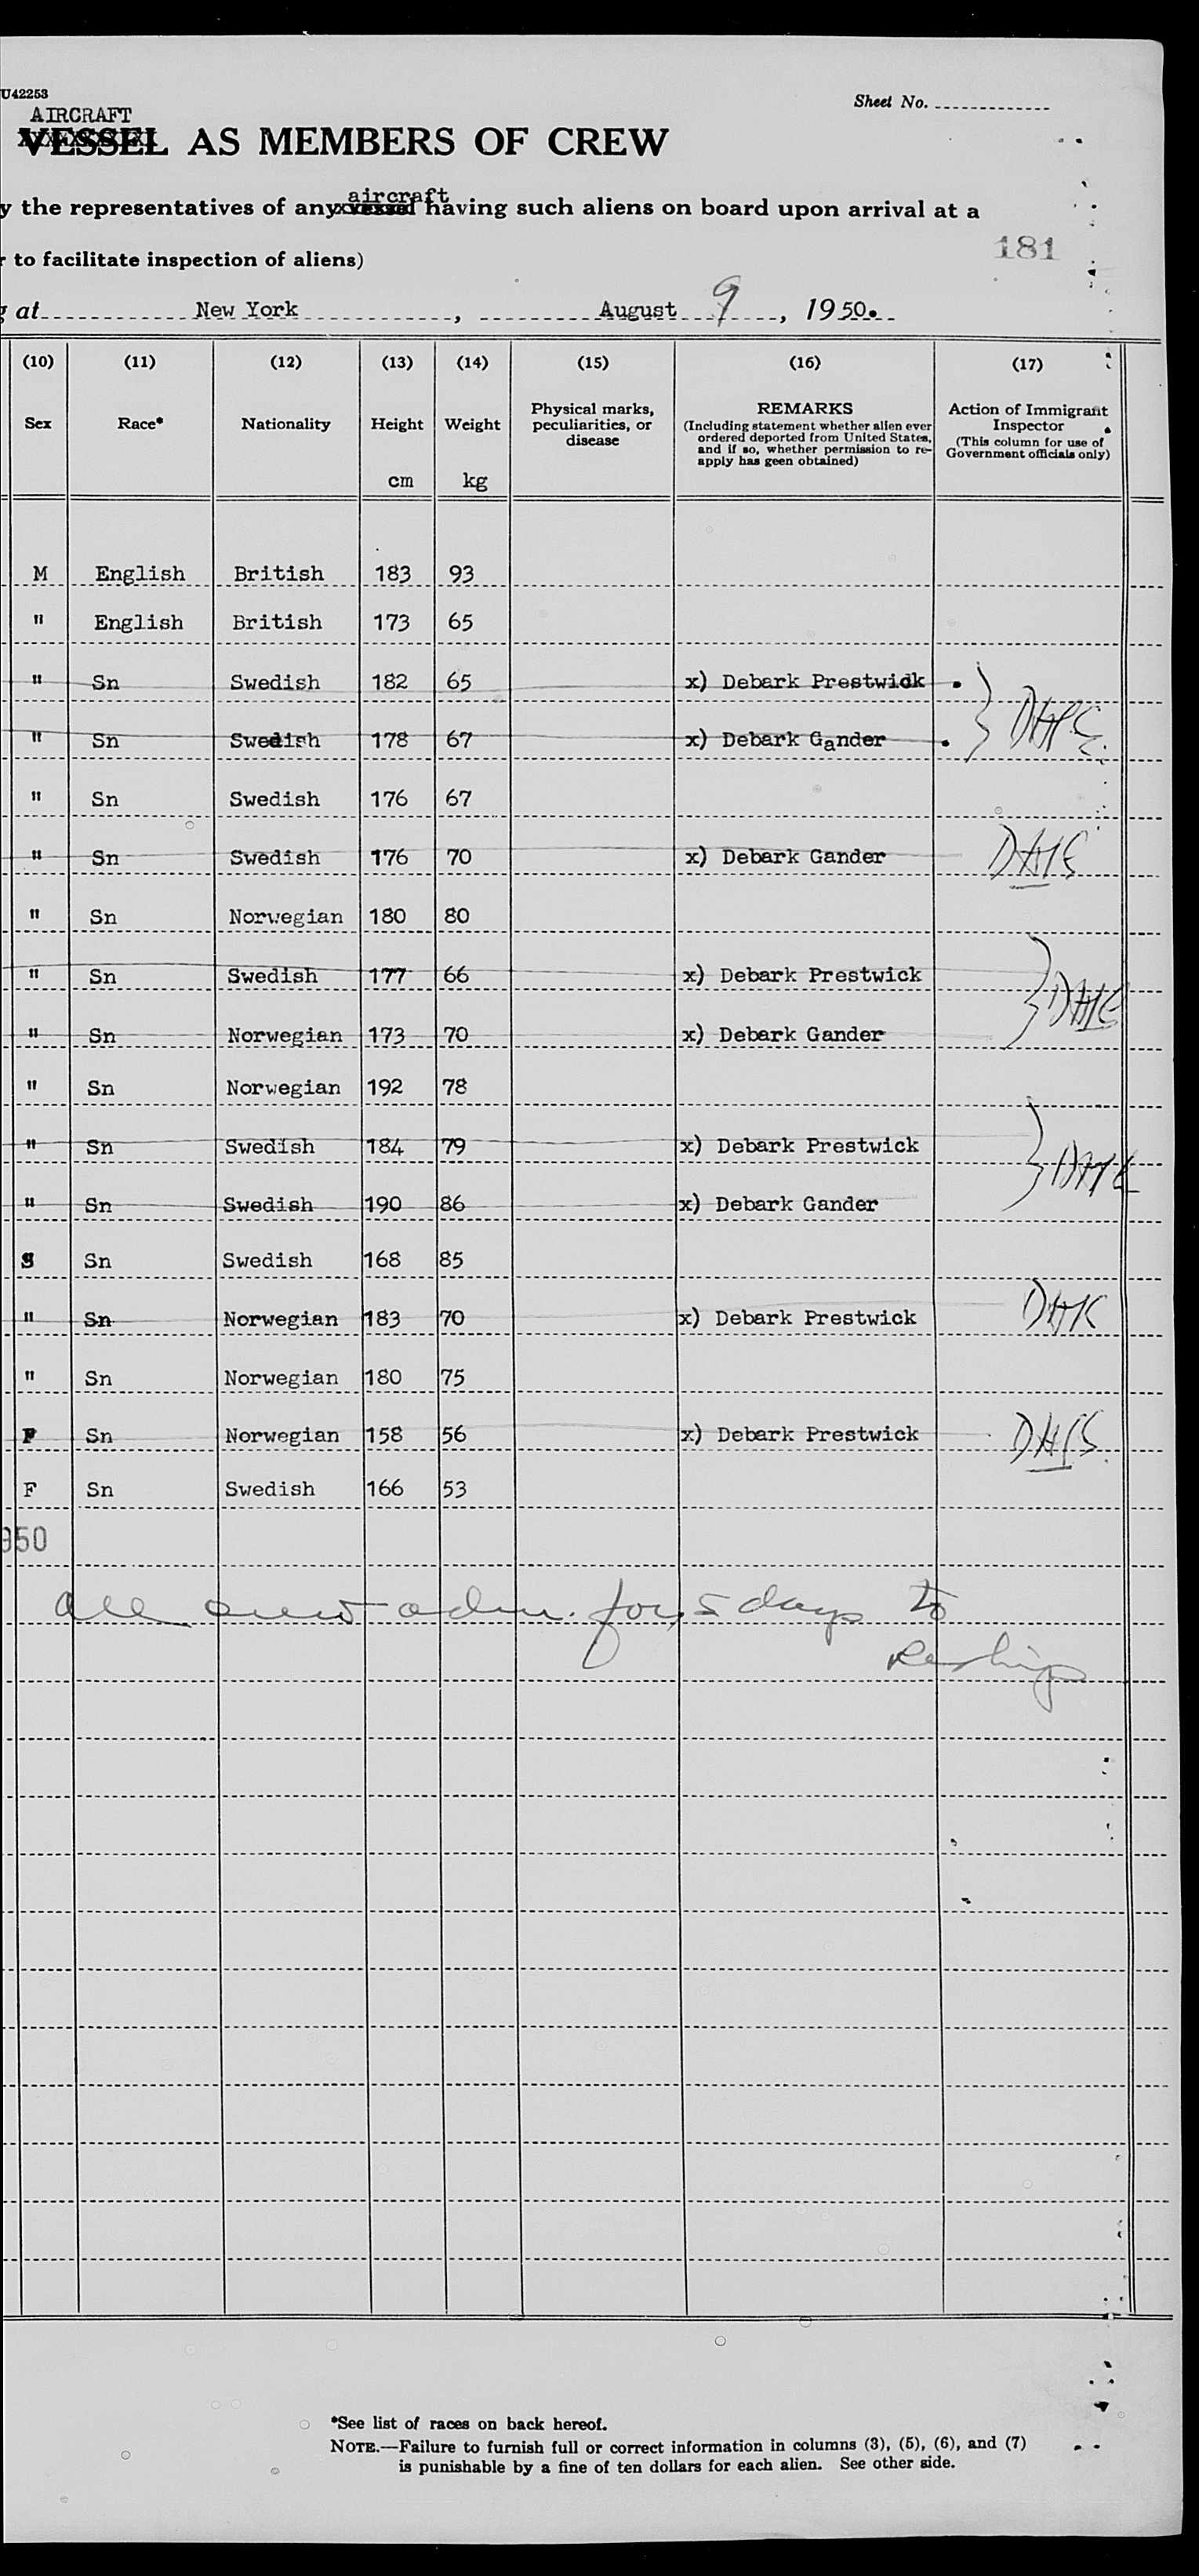 U42253
Sheet No.
AIRCRAFT
VESSEL AS MEMBERS OF CREW
aircraft
y the representatives of any vessel having such aliens on board upon arrival at a
r to facilitate inspection of aliens)
181
g at New York, August 9, 1950.
(10) (11) (12) (13) (14) (15) (16) (17)
Sex Race* Nationality Height Weight Physical marks, peculiarities, or disease REMARKS (Including statement whether alien ever ordered deported from United States, and if so, whether permission to re-apply has geen obtained) Action of Immigrant Inspector (This column for use of Government officials only)
cm kg
M English British 183 93
" English British 173 65
" Sn Swedish 182 65 x) Debark Prestwick
" Sn Swedish 178 67 x) Debark Gander
" Sn Swedish 176 67
" Sn Swedish 176 70 x) Debark Gander
" Sn Norwegian 180 80
" Sn Swedish 177 66 x) Debark Prestwick
" Sn Norwegian 173 70 x) Debark Gander
" Sn Norwegian 192 78
" Sn Swedish 184 79 x) Debark Prestwick
" Sn Swedish 190 86 x) Debark Gander
Sn Swedish 168 85
" Sn Norwegian 183 70 x) Debark Prestwick
" Sn Norwegian 180 75
F Sn Norwegian 158 56 x) Debark Prestwick
F Sn Swedish 166 53
950
all crew adm. for 5 days to
Reship
*See list of races on back hereof.
NOTE.—Failure to furnish full or correct information in columns (3), (5), (6), and (7)
is punishable by a fine of ten dollars for each alien. See other side.